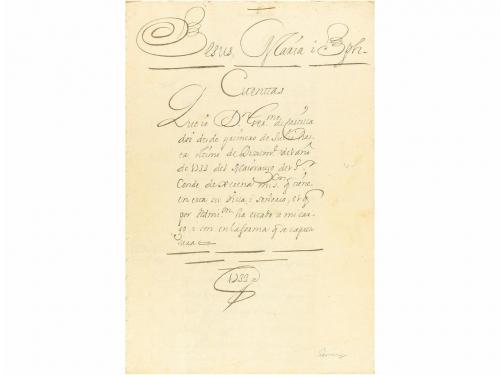 Jesus, María i Joph.
Cuentas
Que io Dn
doi desde primero de Julio has
ta ultimo de Diziembre del año
de 1733 del Maiorazgo del Sr
Conde de mi Sr. q tiene
en esta su Villa, i Señorio, el q
por Admon ha estado a mi car
go i con en la forma q se expre
sara
1733